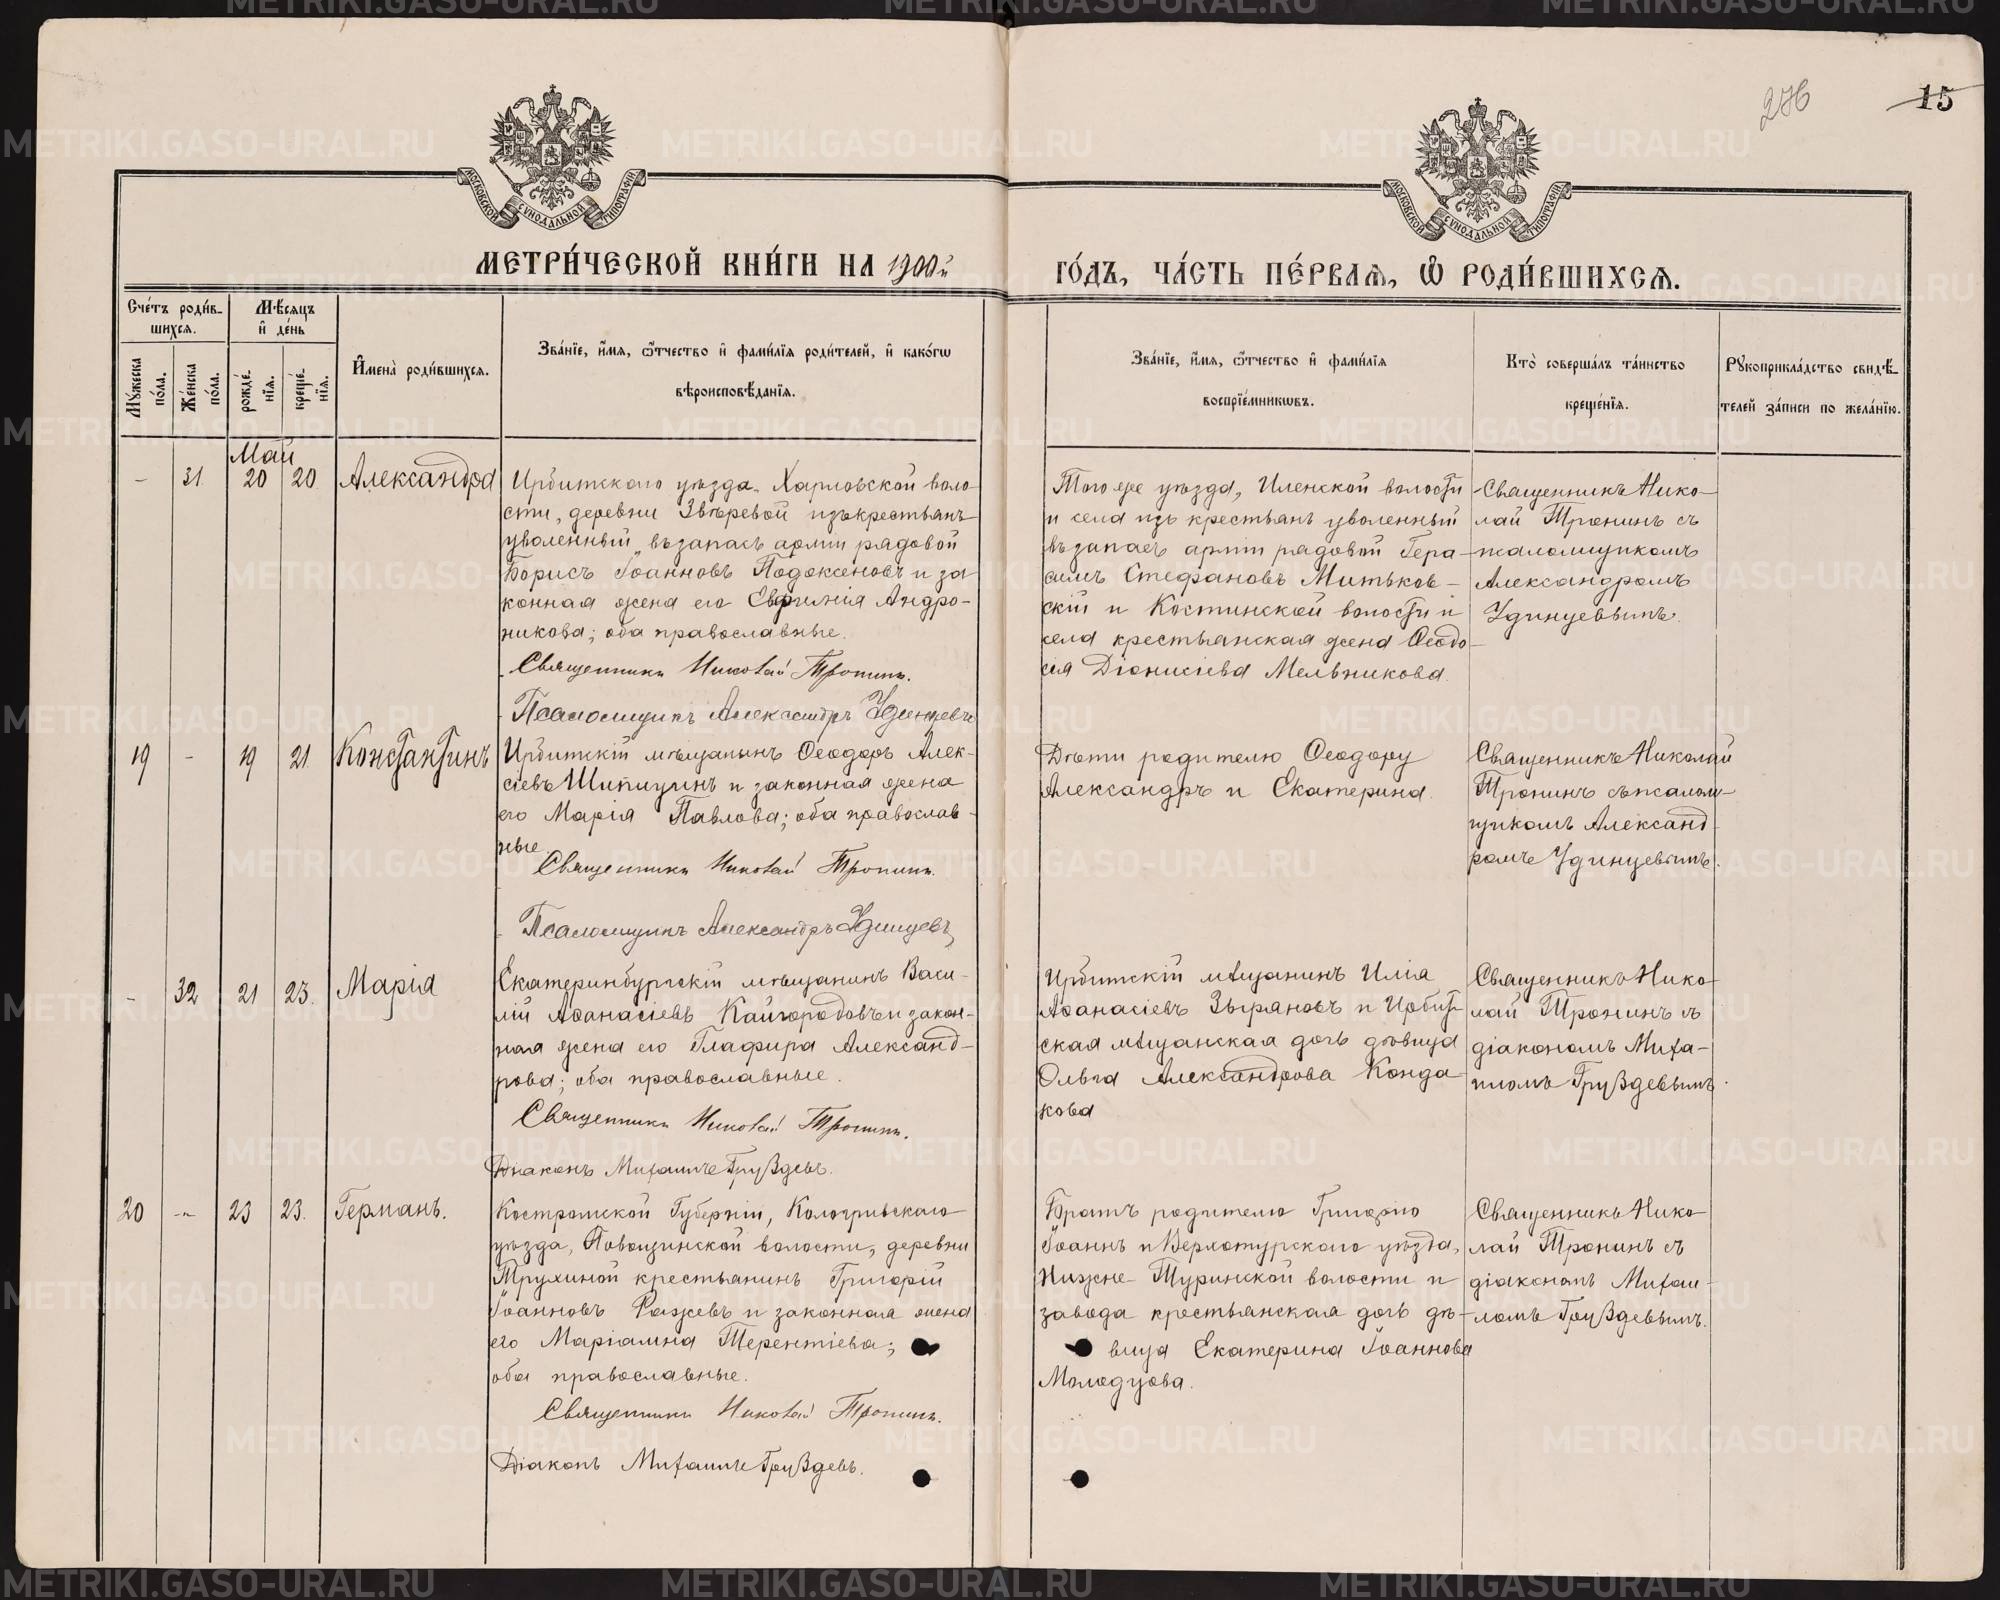 276
15
МОСКОВСКОЙ СѴНОДАЛЬНОЙ ТИПОГРАФІИ
МОСКОВСКОЙ СѴНОДАЛЬНОЙ ТИПОГРАФІИ
МЕТРИ́ЧЕСКОЙ КНИ́ГИ НА 1900й
ГО́ДЪ, ЧА́СТЬ ПЕ́РВАЯ, Ѿ РОДИ́ВШИХСЯ.
Сче́тъ роди́в-
шихся.
Мѣ́сяцъ
и҆ де́нь
Му́жеска
по́ла.
Же́нска
по́ла.
рожде́-
нїя.
креще́-
нїя.
И҆мена̀ роди́вшихся.
Зва́нїе, и҆́мя, ѻ҆́тчество и҆ фами́лїя роди́телей, и҆ како́гѡ
вѣроисповѣ́данїя.
Зва́нїе, и҆́мя, ѻ҆́тчество и҆ фами́лїя
воспрїе́мникѡвъ.
Кто̀ соверша́лъ та́инство
креще́нїя.
Рꙋкоприкла́дство свидѣ́-
телей за́писи по жела́нїю.
Май
- 31 20 20 Александра
Ирбитского уѣзда, Харловской воло-
сти, деревни Звѣревой изъ крестьянъ
уволенный въ запасъ арміи рядовой
Борисъ Іоанновъ Подоксеновъ и за-
конная жена его Евгенія Андро-
никова; оба православные.
Священникъ Николай Тронинъ.
Псаломщикъ Александръ Удинцевъ
Того же уѣзда, Иленской волости
и села изъ крестьянъ уволенный
въ запасъ арміи рядовой Гера-
симъ Стефановъ Митьков-
скій и Костинской волости и
села крестьянская жена Ѳеодо-
сія Діонисіева Мельникова.
Священникъ Нико-
лай Тронинъ съ
псаломщикомъ
Александромъ
Удинцевымъ.
19 - 19 21 Константинъ
Ирбитскій мѣщанинъ Ѳеодоръ Алек-
сіевъ Шипицинъ и законная жена
его Марія Павлова; оба православ-
ные.
Священникъ Николай Тронинъ.
Псаломщикъ Александръ Удинцевъ
Дѣти родителю Ѳеодору
Александръ и Екатерина.
Священникъ Николай
Тронинъ съ псалом-
щикомъ Александ-
ромъ Удинцевымъ.
- 32 21 23. Марія
Екатеринбургскій мѣщанинъ Васи-
лій Аѳанасіевъ Кайгородовъ и закон-
ная жена его Глафира Александ-
рова; оба православные.
Священникъ Николай Тронинъ.
Діаконъ Михаилъ Груздевъ.
Ирбитскій мѣщанинъ Илія
Аѳанасіевъ Зыряновъ и Ирбит-
ская мѣщанская дочь дѣвица
Ольга Александрова Конда-
кова
Священникъ Нико-
лай Тронинъ съ
діакономъ Миха-
иломъ Груздевымъ.
20 - 23 23. Германъ.
Костромской Губерніи, Кологривского
уѣзда, деревни
Трухиной крестьянинъ Григорій
Іоанновъ и законная жена
его Маріамна Терентіева;
оба православные.
Священникъ Николай Тронинъ.
Діаконъ Михаилъ Груздевъ.
Братъ родителю Григорію
Іоаннъ и Верхотурского уѣзда,
Нижне-Туринской волости и
завода крестьянская дочь дѣ-
вица Екатерина Іоаннова
Молодцова.
Священникъ Нико-
лай Тронинъ съ
діакономъ Михаи-
ломъ Груздевымъ.
METRIKI.GASO-URAL.RU